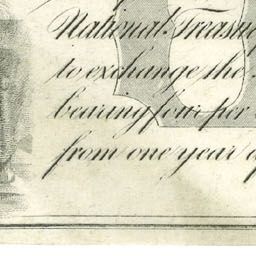 National Treasu
to exchange the
bearing four per
from one year a